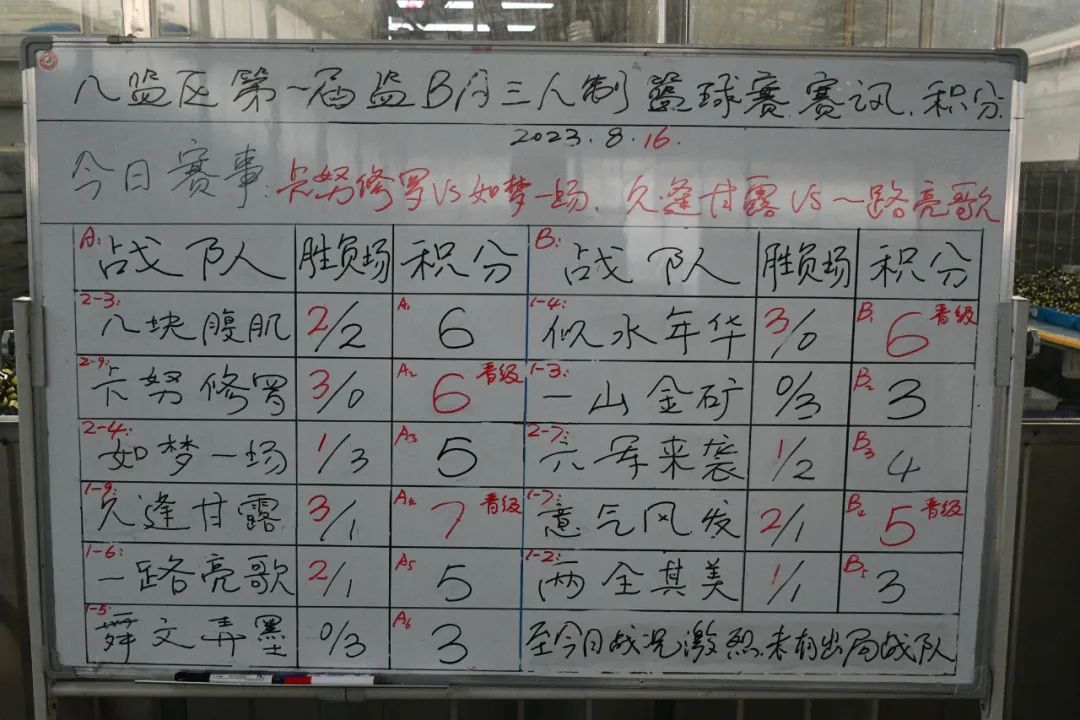 八监区第一届监B门三人制篮球赛赛讯.积分
2023.8.16.
今日赛事:卡努修罗VS如梦一场.久逢甘露VS一路亮歌
A:战队 胜负场 积分 B:战队 胜负场 积分
2-3:八块腹肌 2/2 A1 6 1-4:似水年华 3/0 B1 6晋级
2-9:卡努修罗 3/0 A2 6晋级 1-3:一山金矿 0/3 B2 3
2-4:如梦一场 1/3 A3 5 2-7:六军来袭 1/2 B3 4
1-9:久逢甘露 3/1 A4 7晋级 1-7:意气风发 2/1 B2 5晋级
1-6:一路亮歌 2/1 A5 5 1-2:两全其美 1/1 B5 3
1-5:舞文弄墨 0/3 A6 3 至今日战况激烈.未有出局战队